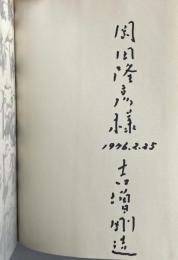 岡田隆彦様
1976.2.25
吉増剛造